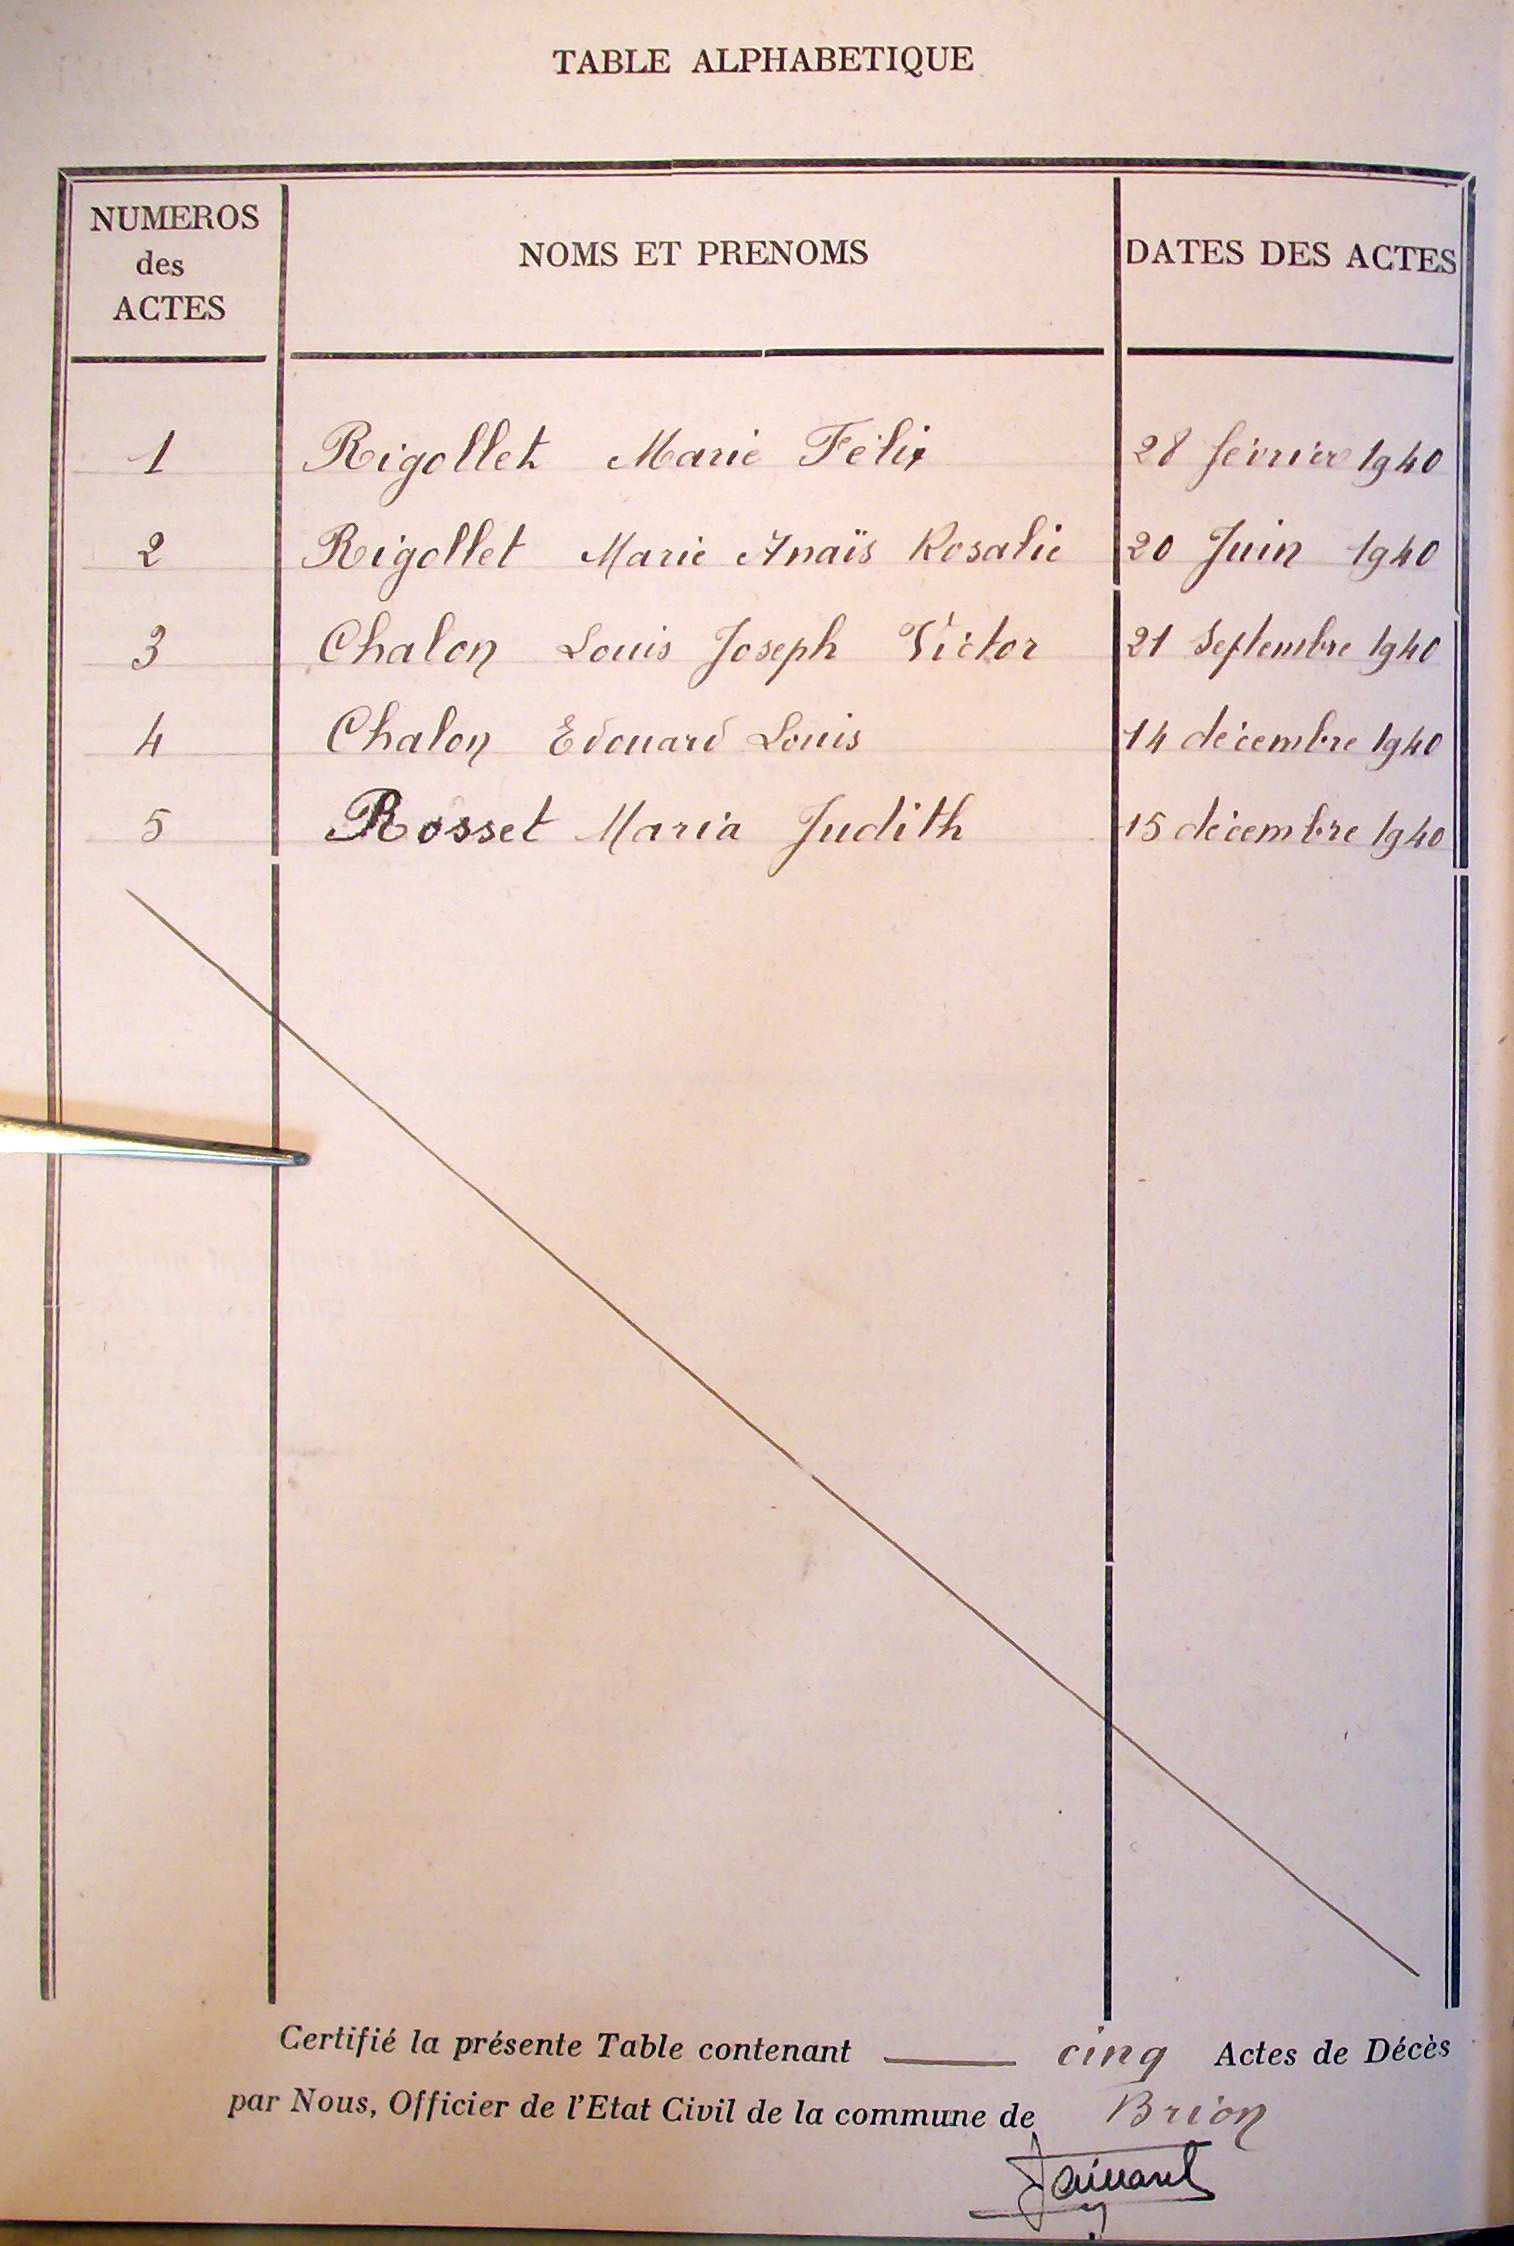 TABLE ALPHABETIQUE
NUMEROS
des
ACTES
NOMS ET PRENOMS
DATES DES ACTES
1 Rigollet Marie Félix 28 février 1940
2 Rigollet Marie Anaïs Rosalie 20 Juin 1940
3 Chalon Louis Joseph Victor 21 Septembre 1940
4 Chalon Edouard Louis 14 décembre 1940
5 Rosset Maria Judith 15 décembre 1940
Certifié la présente Table contenant cinq Actes de Décès
par Nous, Officier de l'Etat Civil de la commune de Brion